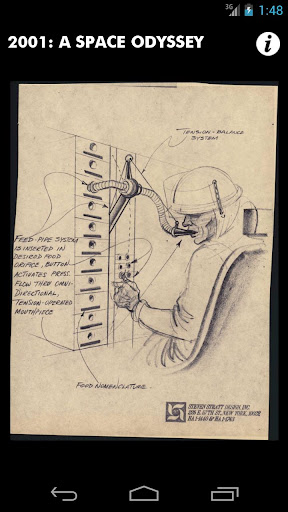 3G 1:48
2001: A SPACE ODYSSEY
i
TENSION-BALANCE
SYSTEM
FEED-PIPE SYSTEM
IS INSERTED IN
DESIRED FOOD
ORIFICE, BUTTON
ACTIVATES PRESS.
FLOW THRU OMNI-
DIRECTIONAL,
TENSION-OPENED
MOUTHPIECE
FOOD NOMENCLATURE
NEW YORK, 10022